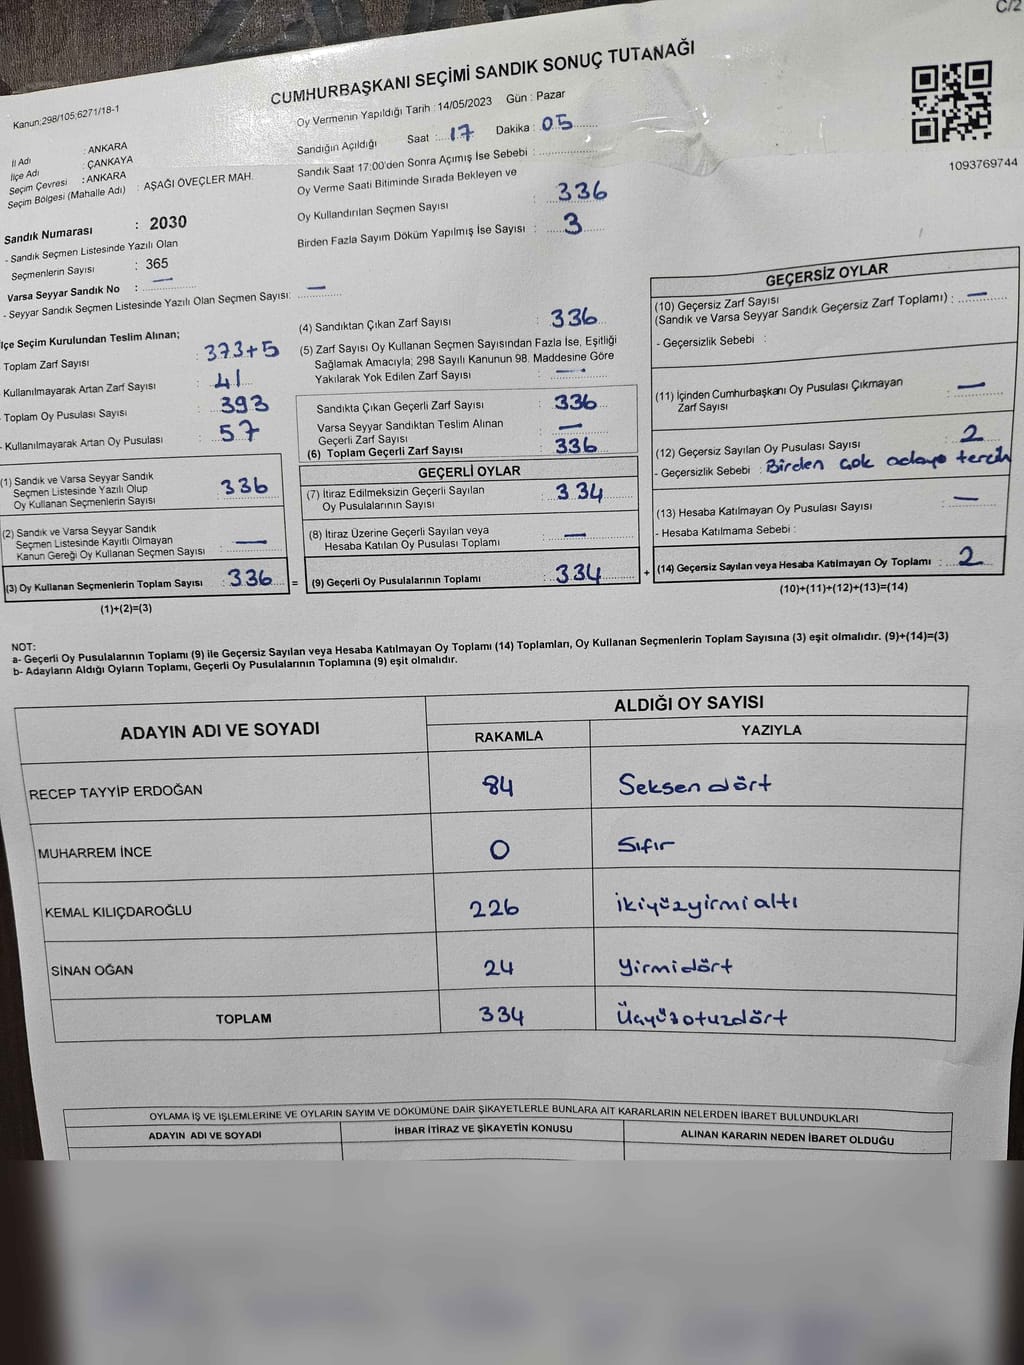 C/2
CUMHURBAŞKANI SEÇİMİ SANDIK SONUÇ TUTANAĞI
Kanun:298/105;6271/18-1
1093769744
İl Adı : ANKARA
İlçe Adı : ÇANKAYA
Seçim Çevresi : ANKARA
Seçim Bölgesi (Mahalle Adı) : AŞAĞI ÖVEÇLER MAH.
Sandık Numarası : 2030
- Sandık Seçmen Listesinde Yazılı Olan
Seçmenlerin Sayısı : 365
Varsa Seyyar Sandık No : —
- Seyyar Sandık Seçmen Listesinde Yazılı Olan Seçmen Sayısı: —
Oy Vermenin Yapıldığı Tarih : 14/05/2023 Gün : Pazar
Sandığın Açıldığı Saat : 17 Dakika : 05
Sandık Saat 17:00'den Sonra Açımış İse Sebebi :
Oy Verme Saati Bitiminde Sırada Bekleyen ve
Oy Kullandırılan Seçmen Sayısı : 336
Birden Fazla Sayım Döküm Yapılmış İse Sayısı : 3
lçe Seçim Kurulundan Teslim Alınan;
Toplam Zarf Sayısı : 373+5
- Kullanılmayarak Artan Zarf Sayısı : 41
- Toplam Oy Pusulası Sayısı : 393
- Kullanılmayarak Artan Oy Pusulası : 57
(1) Sandık ve Varsa Seyyar Sandık
Seçmen Listesinde Yazılı Olup
Oy Kullanan Seçmenlerin Sayısı : 336
(2) Sandık ve Varsa Seyyar Sandık
Seçmen Listesinde Kayıtlı Olmayan
Kanun Gereği Oy Kullanan Seçmen Sayısı : —
(3) Oy Kullanan Seçmenlerin Toplam Sayısı : 336 =
(1)+(2)=(3)
(4) Sandıktan Çıkan Zarf Sayısı : 336
(5) Zarf Sayısı Oy Kullanan Seçmen Sayısından Fazla İse, Eşitliği
Sağlamak Amacıyla; 298 Sayılı Kanunun 98. Maddesine Göre
Yakılarak Yok Edilen Zarf Sayısı : —
Sandıkta Çıkan Geçerli Zarf Sayısı : 336
Varsa Seyyar Sandıktan Teslim Alınan
Geçerli Zarf Sayısı : —
(6) Toplam Geçerli Zarf Sayısı : 336
GEÇERLİ OYLAR
(7) İtiraz Edilmeksizin Geçerli Sayılan
Oy Pusulalarının Sayısı : 334
(8) İtiraz Üzerine Geçerli Sayılan veya
Hesaba Katılan Oy Pusulası Toplamı : —
(9) Geçerli Oy Pusulalarının Toplamı : 334 +
GEÇERSİZ OYLAR
(10) Geçersiz Zarf Sayısı
(Sandık ve Varsa Seyyar Sandık Geçersiz Zarf Toplamı) : —
- Geçersizlik Sebebi :
(11) İçinden Cumhurbaşkanı Oy Pusulası Çıkmayan
Zarf Sayısı : —
(12) Geçersiz Sayılan Oy Pusulası Sayısı : 2
- Geçersizlik Sebebi : Birden çok adaya tercih
(13) Hesaba Katılmayan Oy Pusulası Sayısı : —
- Hesaba Katılmama Sebebi :
(14) Geçersiz Sayılan veya Hesaba Katılmayan Oy Toplamı : 2
(10)+(11)+(12)+(13)=(14)
NOT:
a- Geçerli Oy Pusulalarının Toplamı (9) ile Geçersiz Sayılan veya Hesaba Katılmayan Oy Toplamı (14) Toplamları, Oy Kullanan Seçmenlerin Toplam Sayısına (3) eşit olmalıdır. (9)+(14)=(3)
b- Adayların Aldığı Oyların Toplamı, Geçerli Oy Pusulalarının Toplamına (9) eşit olmalıdır.
ADAYIN ADI VE SOYADI ALDIĞI OY SAYISI
RAKAMLA YAZIYLA
RECEP TAYYİP ERDOĞAN 84 Seksen dört
MUHARREM İNCE 0 Sıfır
KEMAL KILIÇDAROĞLU 226 ikiyüzyirmi altı
SİNAN OĞAN 24 Yirmidört
TOPLAM 334 Üçyüzotuzdört
OYLAMA İŞ VE İŞLEMLERİNE VE OYLARIN SAYIM VE DÖKÜMÜNE DAİR ŞİKAYETLERLE BUNLARA AİT KARARLARIN NELERDEN İBARET BULUNDUKLARI
ADAYIN ADI VE SOYADI İHBAR İTİRAZ VE ŞİKAYETİN KONUSU ALINAN KARARIN NEDEN İBARET OLDUĞU